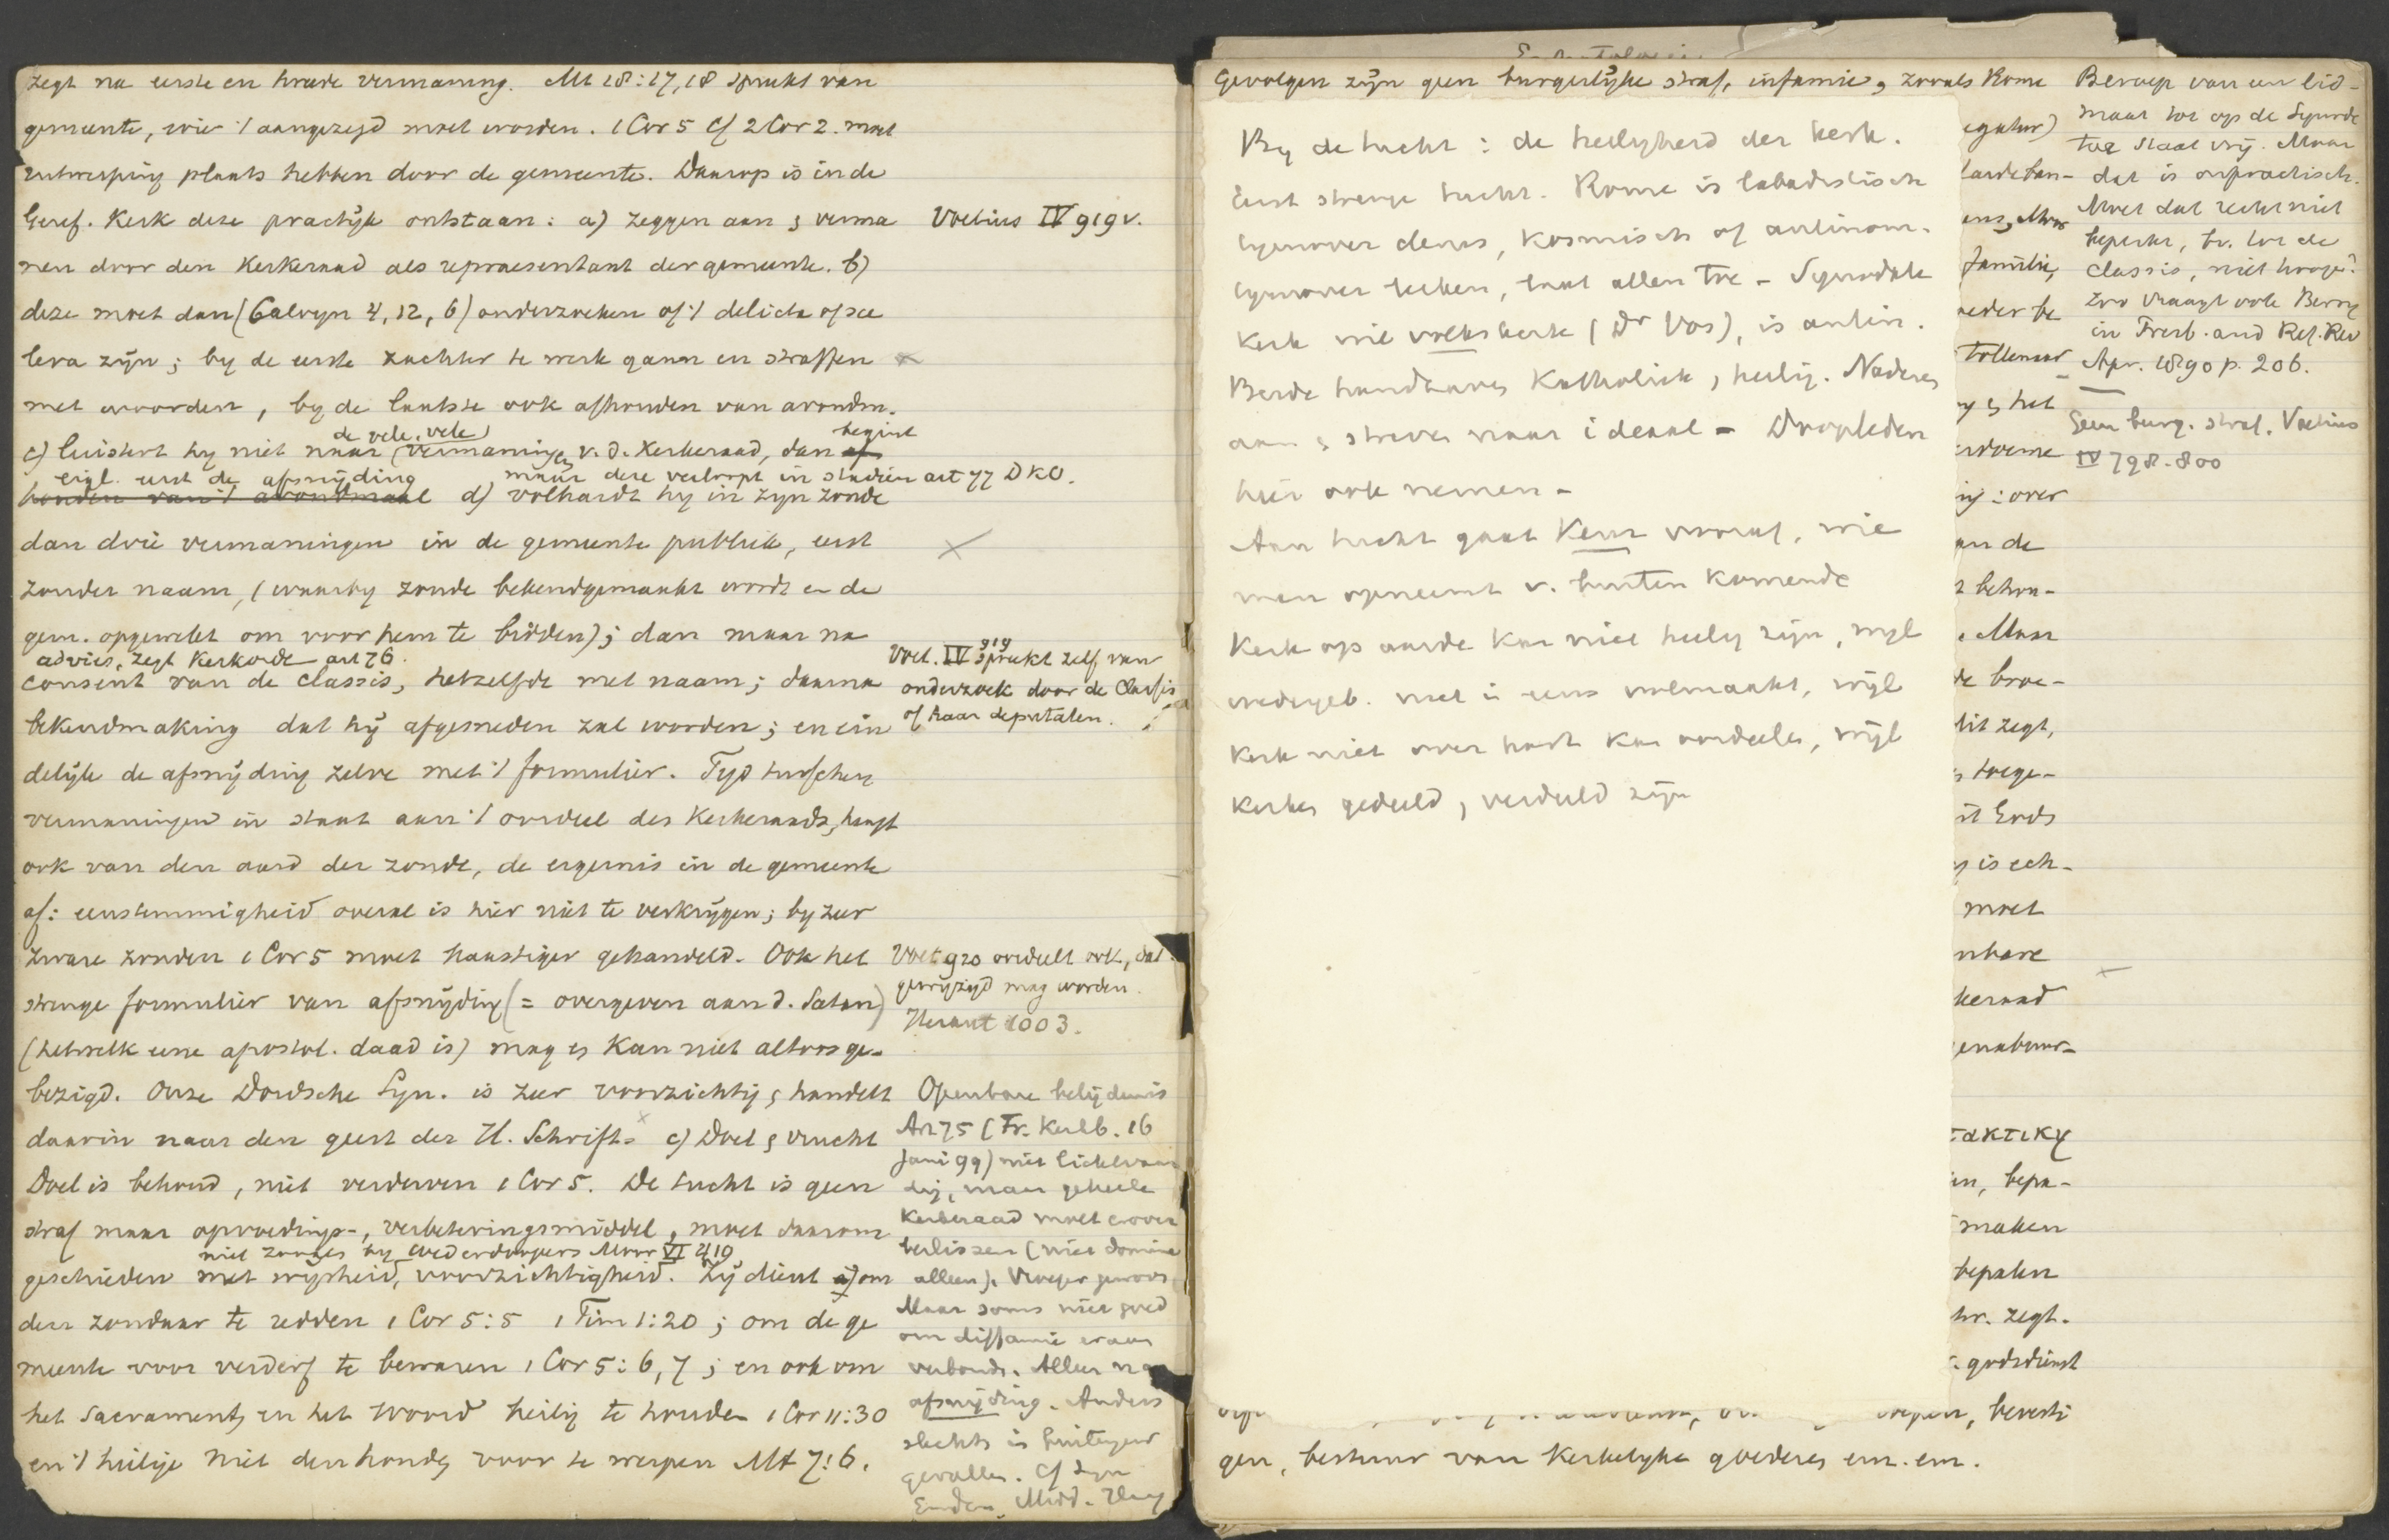 zegt na eerste en tweede vermaning. Mt 18:17,18 spreekt van
gemeente, wier 't aangezegd moet worden. 1 Cor 5 cf 2 Cor 2. moet
plaats hebben door de gemeente. Daarop is in de
Geref. Kerk deze practijk ontstaan: a) zeggen aan & verma
nen door den Kerkeraad als repraesentant der gemeente. b)
deze moet dan (Calvyn 4, 12, 6) onderzoeken of 't delicta of sce
lera zijn; by de eerste zachter te werk gaan en straffen
met woorden, by de laatste ook afhouden van avondm.
de vele, vele begint
c) luistert hy niet naar vermaningen v. d. Kerkeraad, dan
eigl. eerst de afsnijding maar deze verloopt in stadien
houden van 't avondmaal d) volhardt hy in zyn zonde
dan drie vermaningen in de gemeente publiek, eerst
zonder naam, (waarby zonde bekendgemaakt wordt en de
gem. opgewekt om voor hem te bidden); dan maar na
advies, zegt Kerkorde art 76.
consent van de classis, hetzelfde met naam; daarna
bekendmaking dat hij afgesneden zal worden; en ein
delijk de afsnijding zelve met 't formulier. Tijd tusschen
vermaningen in staat aan 't oordeel des Kerkeraads, hangt
ook van den aard der zonde, de ergernis in de gemeente
af: eenstemmigheid overal is hier niet te verkrijgen; by zeer
zware zonden 1 Cor 5 moet haastiger gehandeld. Ook het
strenge formulier van afsnijding (= overgeven aan d. Satan)
(hetwelk eene apostol. daad is) mag & kan niet altoos ge-
bezigd. Onze Dordsche Syn. is zeer voorzichtig & handelt
daarin naar den geest der H. Schrift. c) Doel & vrucht
Doel is behoud, niet verderven 1 Cor 5. De tucht is geen
straf maar opvoedings-, verbeteringsmiddel, moet daarom
niet zooals by Wederdoopers Moor VI 419
geschieden met wijsheid, voorzichtigheid. Zij dient a) om
den zondaar te redden 1 Cor 5:5 1 Tim 1:20; om de ge
meente voor verderf te bewaren 1 Cor 5: 6, 7; en ook om
het Sacrament, en het Woord heilig te houden 1 Cor 11:30
en 't heilige niet den honden voor te werpen Mt 7:6.
Voetius IV 919 v.
art 77 DKO.
919
Voet. IV spreekt zelf van
onderzoek door de Classis
of haar deputaten.
Voet 920 oordeelt ook, dat
gewijzigd mag worden.
Heraut 1003.
Openbare belijdenis
Art 75 (Fr. Kerkb. 16
Juni 99) niet lichtvaar
dig, maar geheele
Kerkeraad moet erover
beslissen (niet dominé
alleen). Vroeger gewoon
Maar soms niet goed
om diffamie eraan
verbonde. Alleen na
afsnijding. Anders
slechts in buitengew
gevallen. cf Syn
Emden, Midd.
Gevolgen zijn geen burgerlijke straf, infamie, zooals Rome
By de tucht: de heiligheid der kerk.
Eerst strenge tucht. Rome is labadistisch
tegenover clerus, kosmisch of antinom.
tegenover leeken, laat allen toe - Synodale
Kerk wie volkskerk (Dr Vos), is antin.
Beide handhaven Katholiek, heilig. Naderen
aan & streven naar ideaal - Doopleden
hier ook nemen -
Aan tucht gaat Keur vooraf, wie
men opneemt v. buiten komende
Kerk op aarde kan niet heilig zijn, wijl
wedergeb. niet in eens volmaakt, wijl
Kerk niet over hart kan oordeelen, wijl
Kerken gedeeld, verdeeld zijn
egatur)
familie,
eder be
Tollenaar
en het
ing: over
an de
behou-
Maar
de broe-
dit zegt,
toege-
it Gods
is ech-
moet
nbare
keraad
in, bepa-
maken
bepalen
hr. zegt.
godsdienst
, bevesti
gen, bestuur van Kerkelyke goederen enz. enz.
Beroep van een lid-
maat tot op de Synode
toe staat vrij. Maar
dat is onpractisch.
Moet dat recht niet
beperkt, bv. tot de
classis, niet hooger?
Zoo vraagt ook
in Presb. and Ref. Rev
Apr. 1890 p. 206.
Geen burg. straf. Voetius
IV 798-800